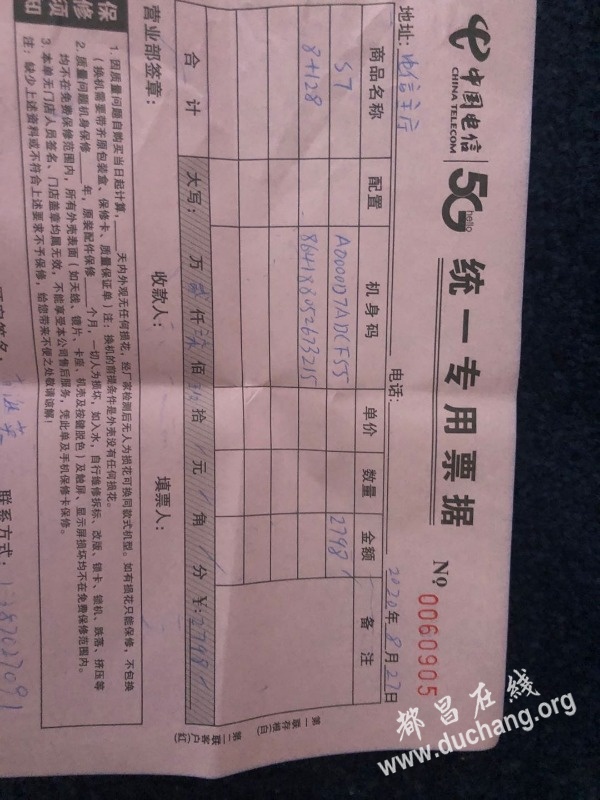 中国电信
CHINA TELECOM
5G
hello
统一专用票据
№ 0060905
地址:电信专厅
电话:
2020年8月27日
商品名称 配置 机身码 单价 数量 金额 备注
S7 A00000D7ADCF555 2798
8+128 864188052673215
合计 大写: 万 贰仟柒佰玖拾 元 角 分 ¥:2798
营业部签章: 收款人: 填票人:
第一联存根(白)
第二联客户(红)
保修须知
1. 因质量问题自购买当日起计算,____天内外观无任何损花,经厂家检测后无人为损花可换同款式机型。如有损花只能保修,不包换
(换机需要带齐原包装盒、保修卡、质量保证单)注:换机的前提条件是外壳没有任何损花。
2. 质量问题机身保修____年,原装配件保修____个月,一切人为损坏,如入水,自行维修拆标、改版、锁卡、锁机、跌落、挤压等
均不在免费保修范围内,所有外壳表面(如天线、镜片、卡座、机壳及按键脱色)及触屏、显示屏损坏均不在免费保修范围内。
3. 本单无门店人员签名、门店盖章均属无效,不能享受本公司售后服务,凭此单及手机保修卡保修。
注:缺少上述资料或不符合上述要求不予保修,给您带来不便之处敬请谅解!
联系方式:13387027091
都昌在线
www.duchang.org